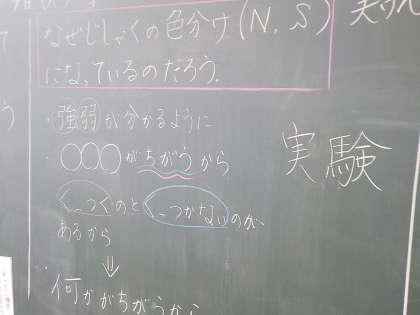 なぜじしゃくの色分け(N,S)
になっているのだろう.
・強弱が分かるように
・○○○がちがうから
くっつくのとくっつかないのが、
あるから
⇓
何かがちがうから
実験